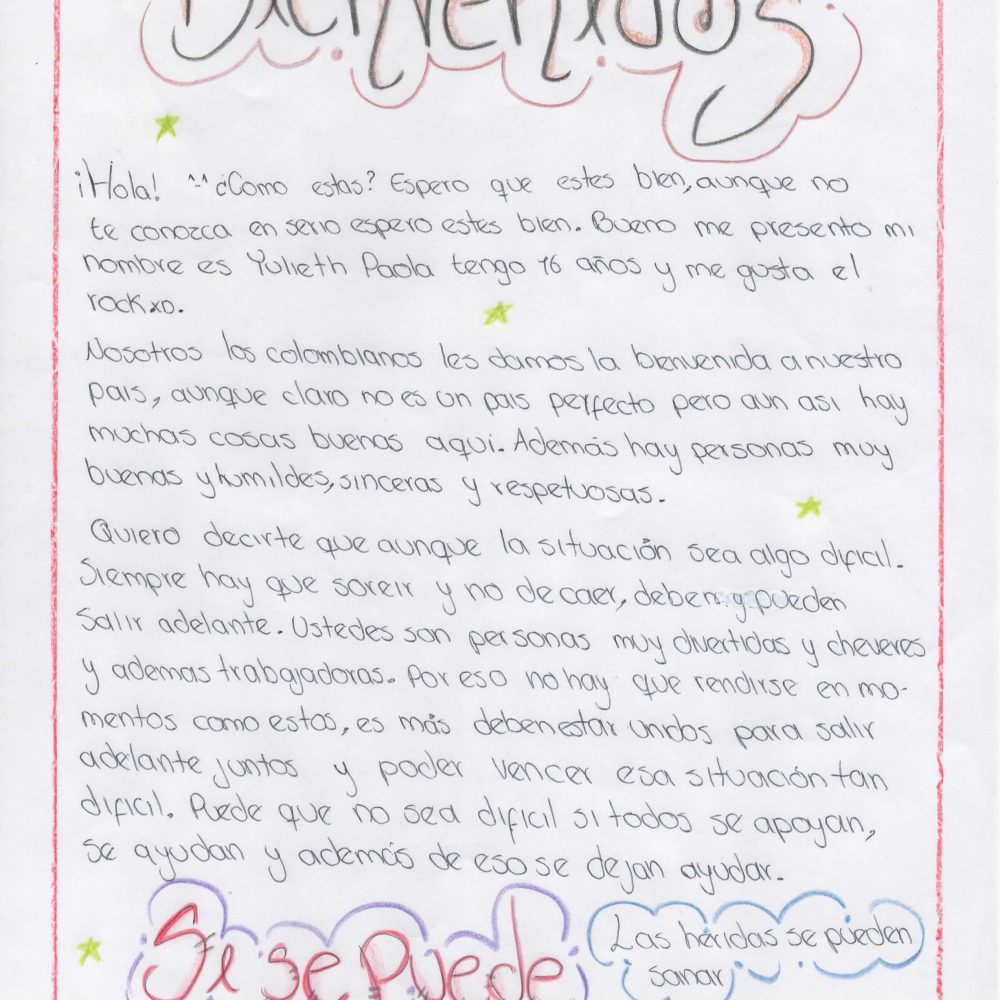 Bienvenidos
¡Hola! ¿Como estas? Espero que estes bien, aunque no
te conozca en serio espero estes bien. Bueno me presento mi
nombre es Yulieth Paola tengo 16 años y me gusta el
rock xD.
Nosotros los colombianos les damos la bienvenida a nuestro
pais, aunque claro no es un pais perfecto pero aun asi hay
muchas cosas buenas aqui. Además hay personas muy
buenas y humildes, sinceras y respetuosas.
Quiero decirte que aunque la situación sea algo dificil.
Siempre hay que soreir y no decaer, deben y pueden
Salir adelante. Ustedes son personas muy divertidas y cheveres
y ademas trabajadoras. Por eso no hay que rendirse en mo-
mentos como estos, es más deben estar unidos para salir
adelante juntos y poder vencer esa situación tan
dificil. Puede que no sea dificil si todos se apoyan,
se ayudan y además de eso se dejan ayudar.
Si se puede
Las heridas se pueden
sanar